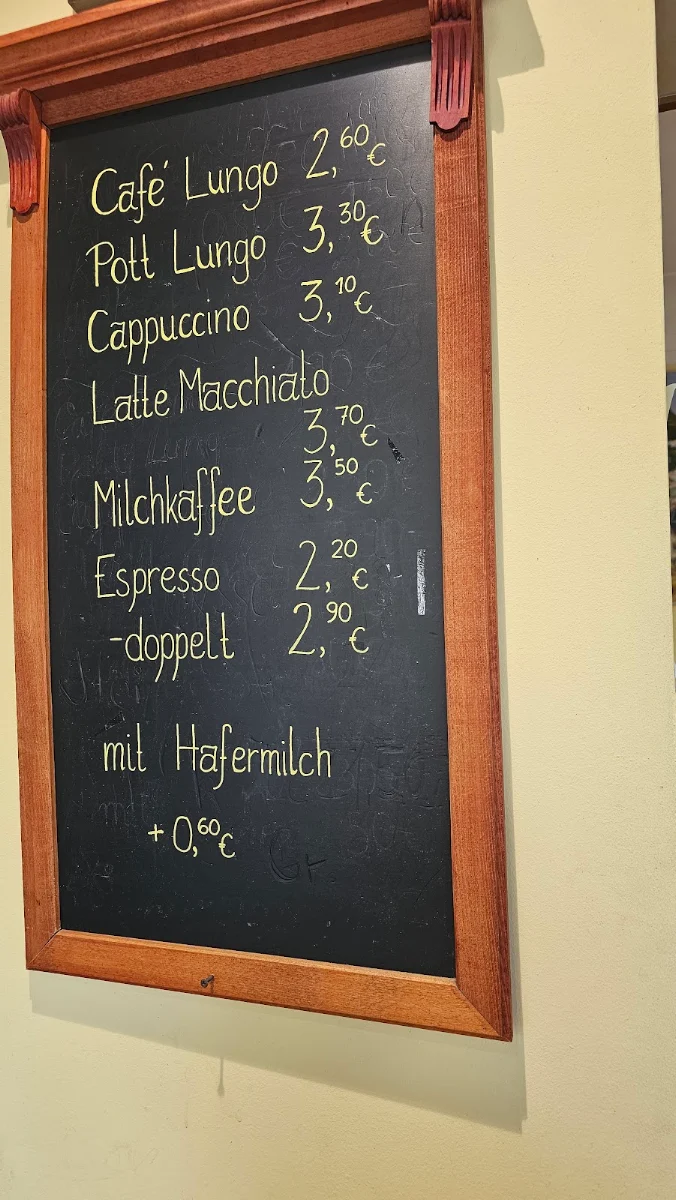 Café Lungo 2,60€
Pott Lungo 3,30€
Cappuccino 3,10€
Latte Macchiato
3,70€
Milchkaffee 3,50€
Espresso 2,20€
-doppelt 2,90€
mit Hafermilch
+ 0,60€